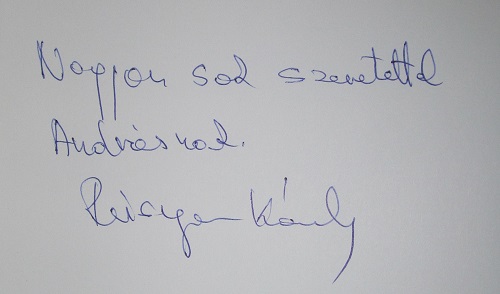 Nagyon sok szeretettel
Andrásnak.
Károly